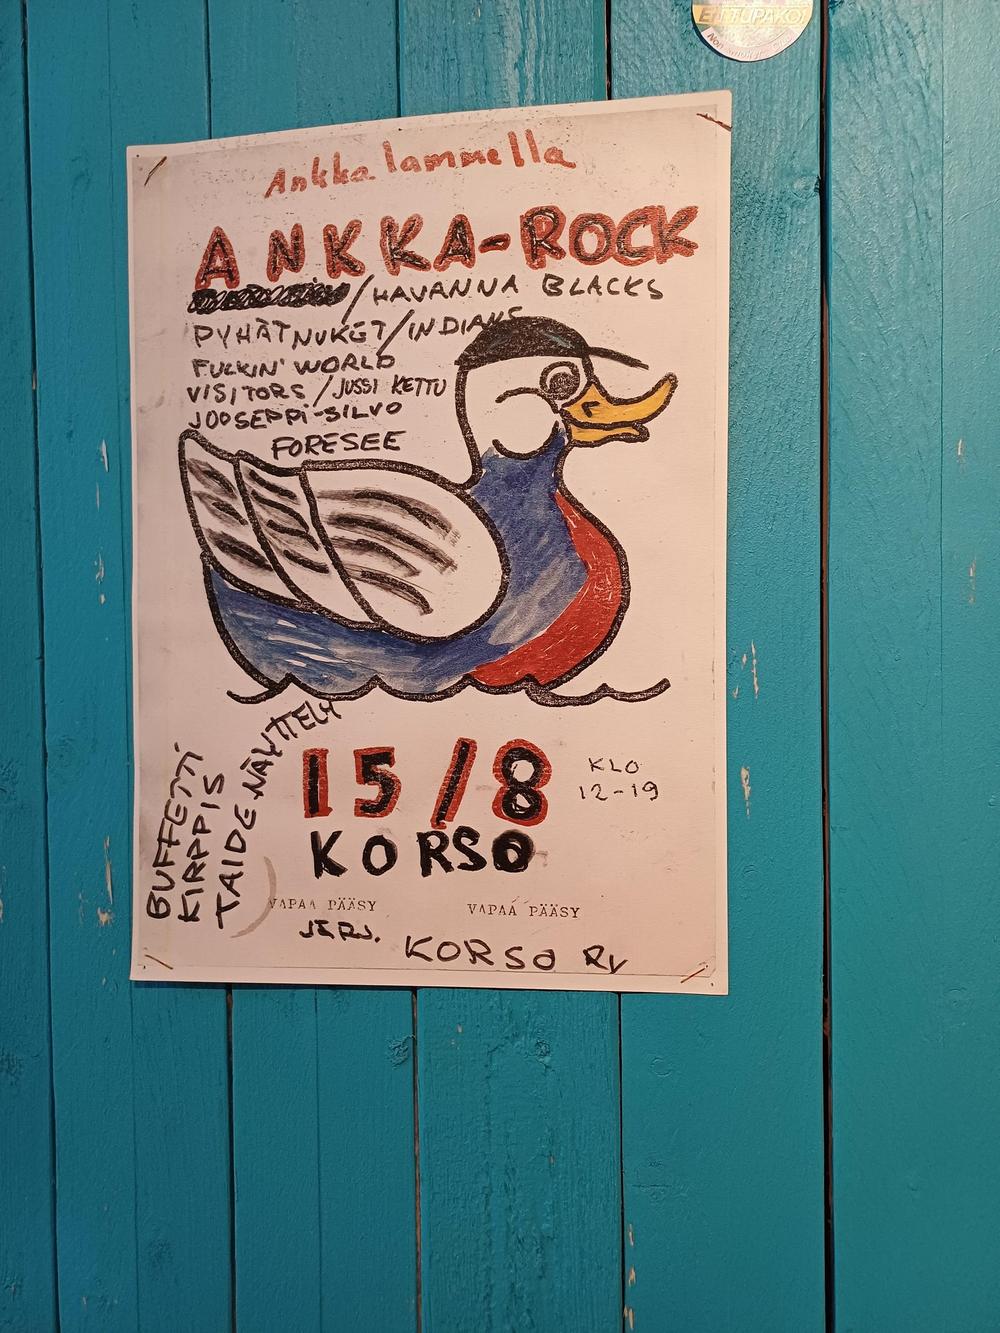 EI TUPAKOI
Ankkalammella
ANKKA-ROCK
/HAVANNA BLACKS
PYHÄT NUKET/INDIANS
FUCKIN' WORLD
VISITORS /JUSSI KETTU
JOOSEPPI-SILVO
FORESEE
BUFFETTI
KIRPPIS
TAIDENÄYTTELY
15/8
KLO
12-19
KORSO
VAPAA PÄÄSY VAPAA PÄÄSY
JÄRJ. KORSO RY